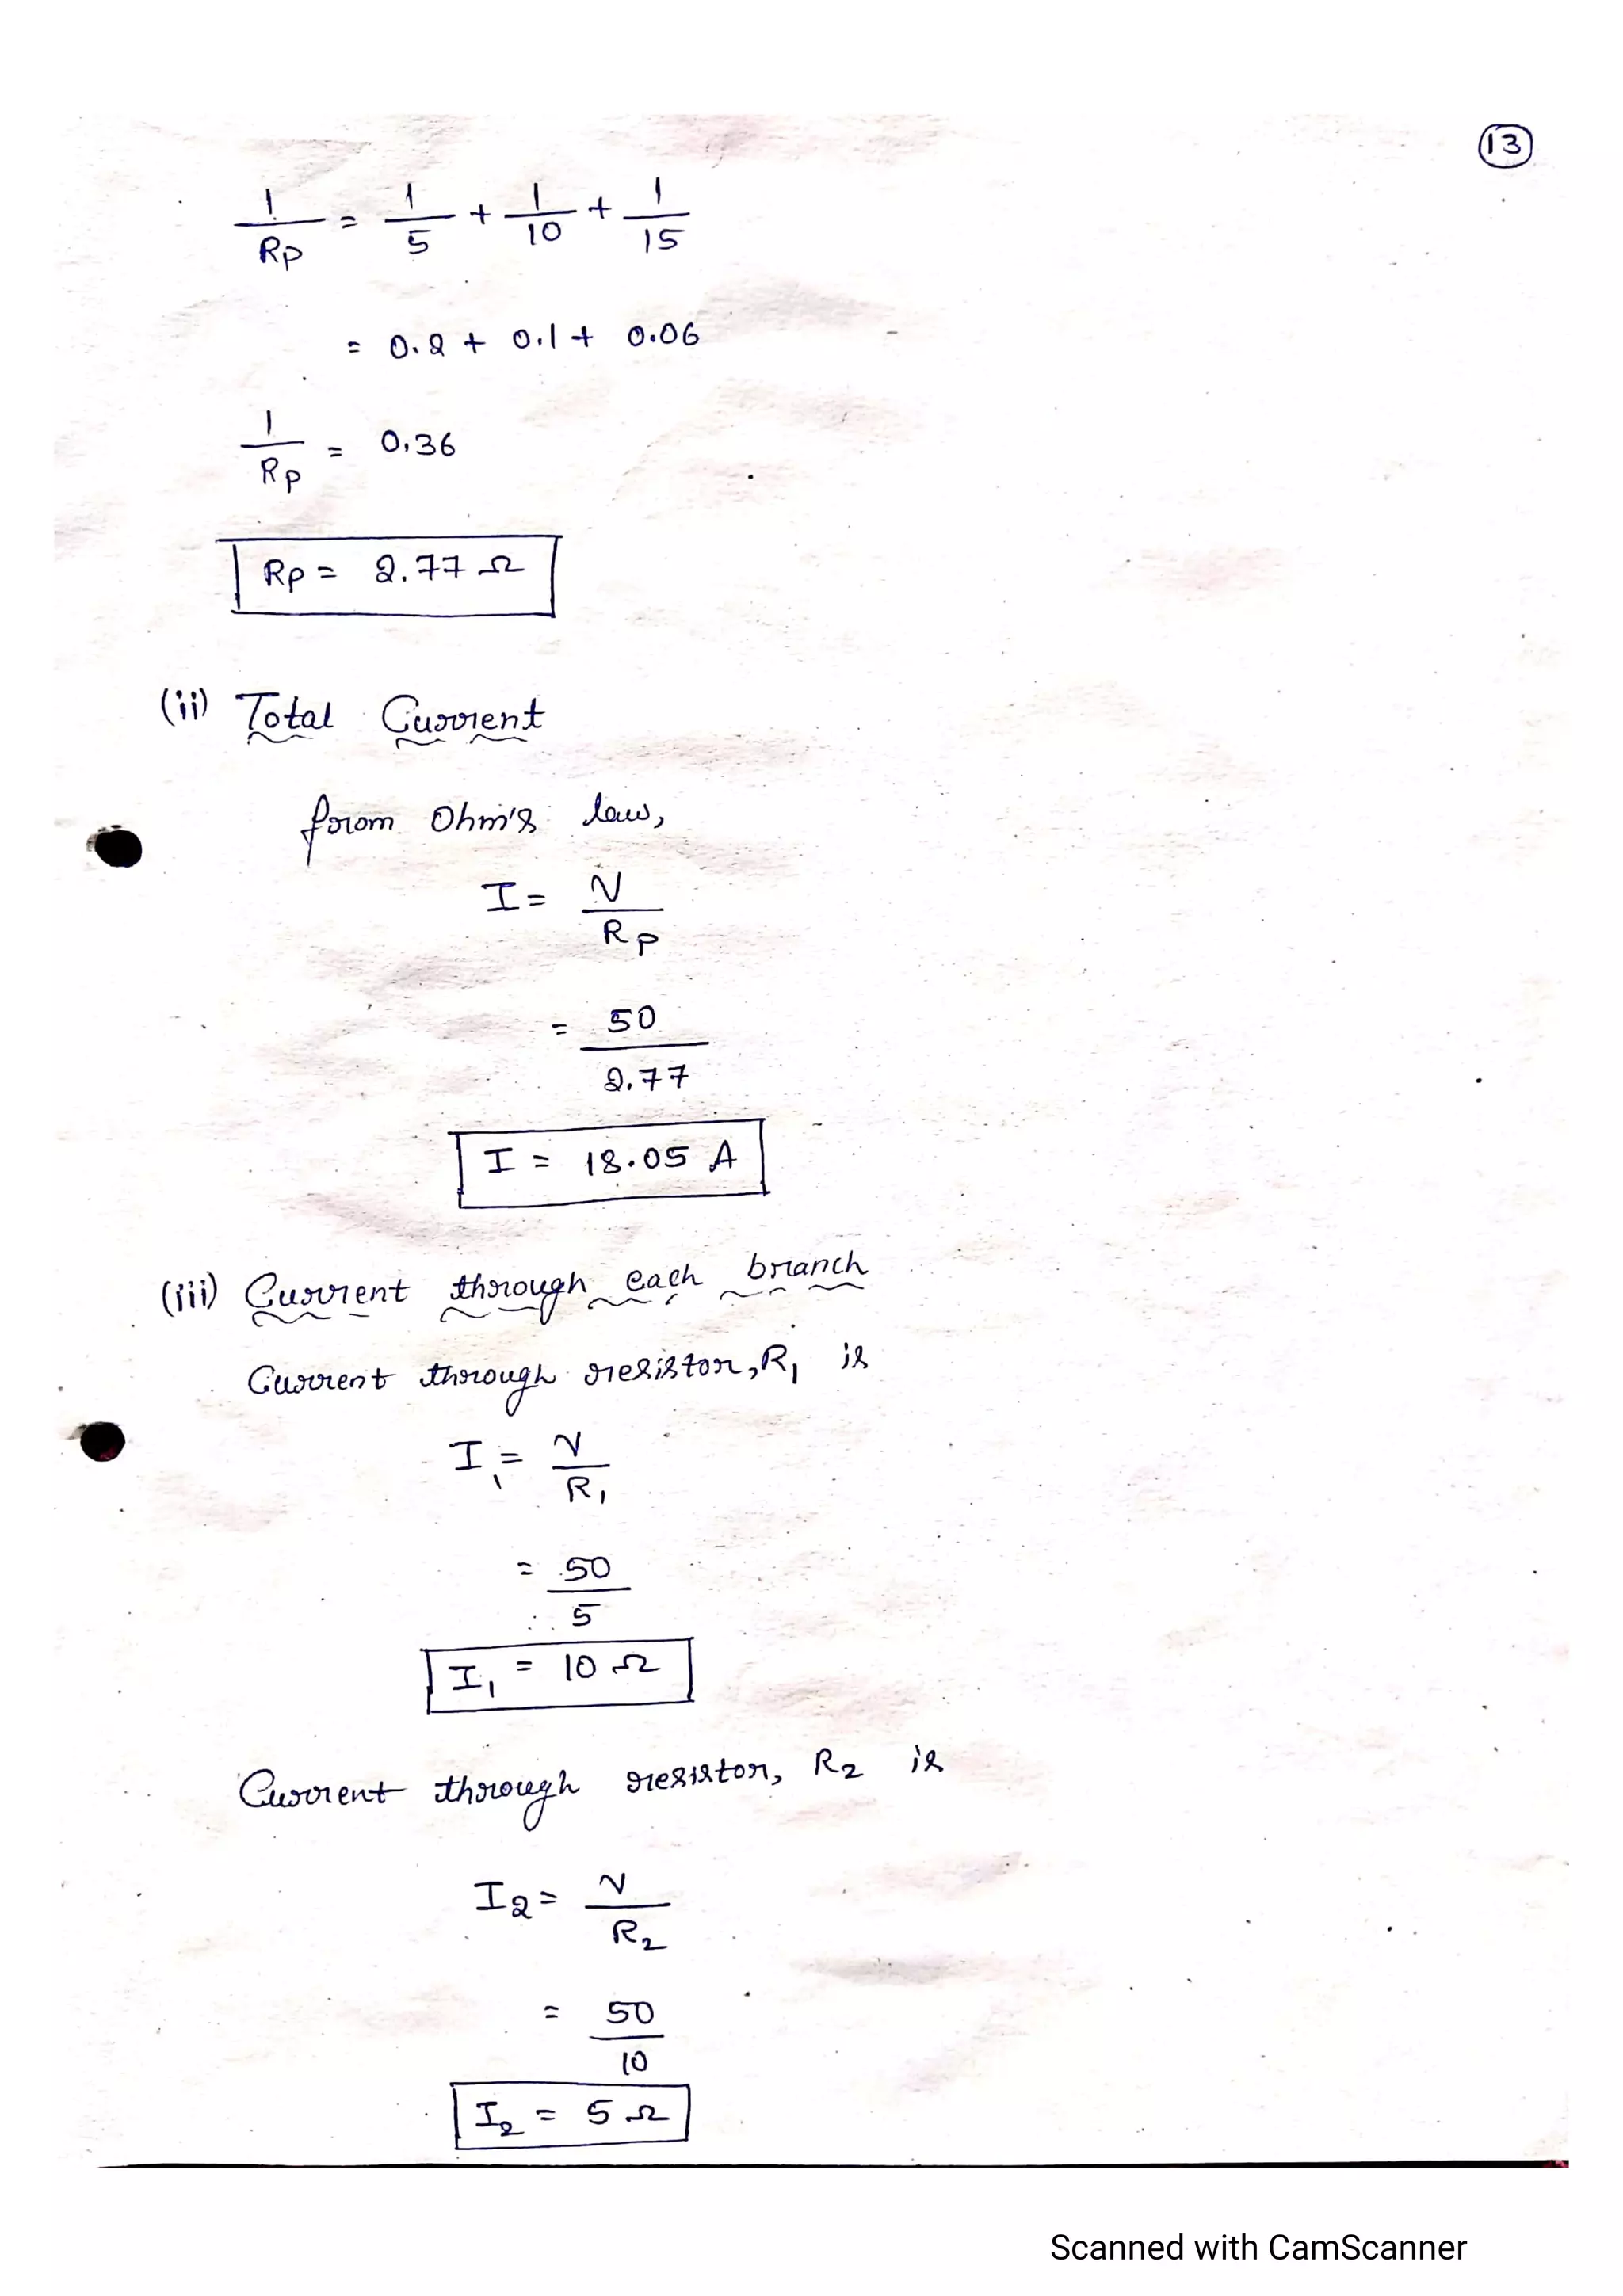 13
1/Rp = 1/5 + 1/10 + 1/15
= 0.2 + 0.1 + 0.06
1/Rp = 0.36
Rp = 2.77 Ω
(ii) Total Current
from Ohm's law,
I = V/Rp
= 50/2.77
I = 18.05 A
(iii) Current through each branch
Current through resistor, R1 is
I1 = V/R1
= 50/5
I1 = 10 Ω
Current through resistor, R2 is
I2 = V/R2
= 50/10
I2 = 5 Ω
Scanned with CamScanner